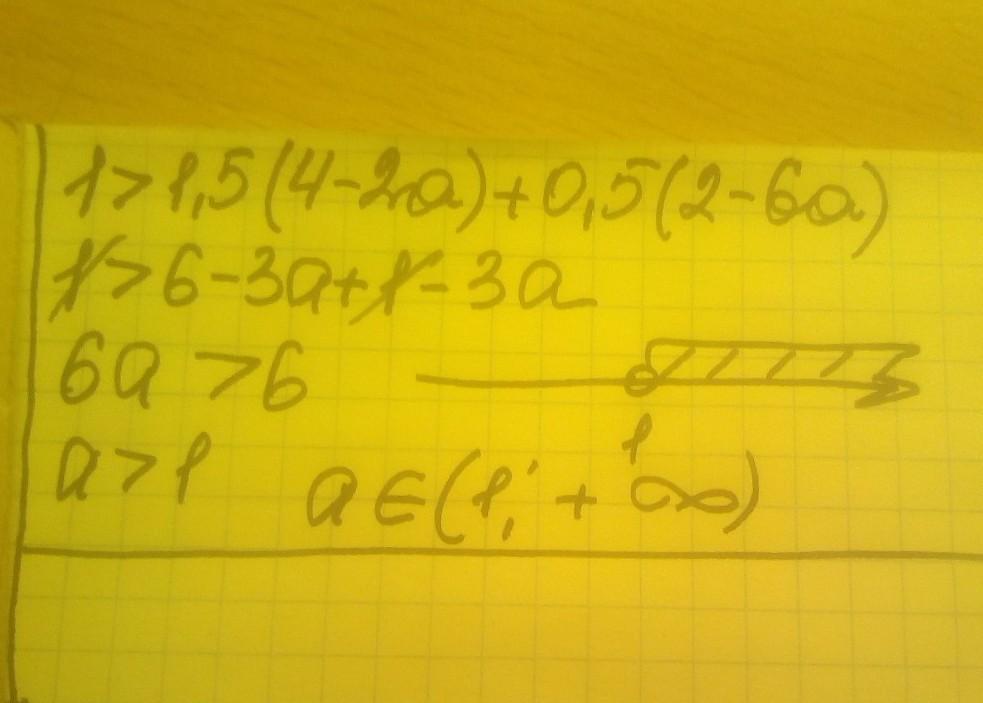 1>1,5(4-2a)+0,5(2-6a)
1>6-3a+1-3a
6a>6
1
a>1 a∈(1;+∞)